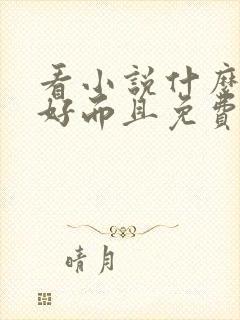 看小說什麼
好而且免費
晴月